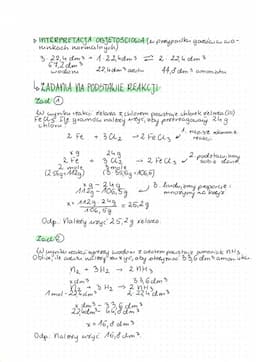 ↳ INTERPRETACJA OBJĘTOŚCIOWA (w przypadku gazów w wa-
runkach normalnych)
3·22,4dm³ + 1·22,4dm³ ⇄ 2·22,4dm³
67,2dm³ 22,4dm³ azotu 44,8dm³ amoniaku
wodoru
↳ ZADANIA NA PODSTAWIE REAKCJI:
Zad ①
W wyniku reakcji żelaza z chlorem powstaje chlorek żelaza (III)
FeCl₃. Ile gramów należy użyć, aby przereagowały 24g
chloru
2 Fe + 3Cl₂ → 2FeCl₃ 1. reakcji
xg 24g
2 Fe + 3 Cl₂ → 2 FeCl₃ 2. podstawiamy
2 mole 3 mole
(2·56g=112g) (3·35,5g=106,5)
xg - 24g
112g - 106,5g 3. budujemy proporcję
mnożymy na krzyż
x = 112g·24g / 106,5g = 25,2g
Odp. Należy użyć 25,2g żelaza.
Zad ②
W wyniku reakcji wodoru z azotem powstaje amoniak NH₃.
Oblicz, ile azotu należy użyć, aby otrzymać 33,6dm³ amoniaku
N₂ + 3H₂ → 2NH₃
xdm³ 33,6dm³
N₂ + 3H₂ → 2NH₃
1mol - 22,4dm³ 2·22,4dm³
xdm³ - 33,6dm³
22,4dm³ - 44,8dm³
x = 16,8dm³
Odp. Należy użyć 16,8dm³